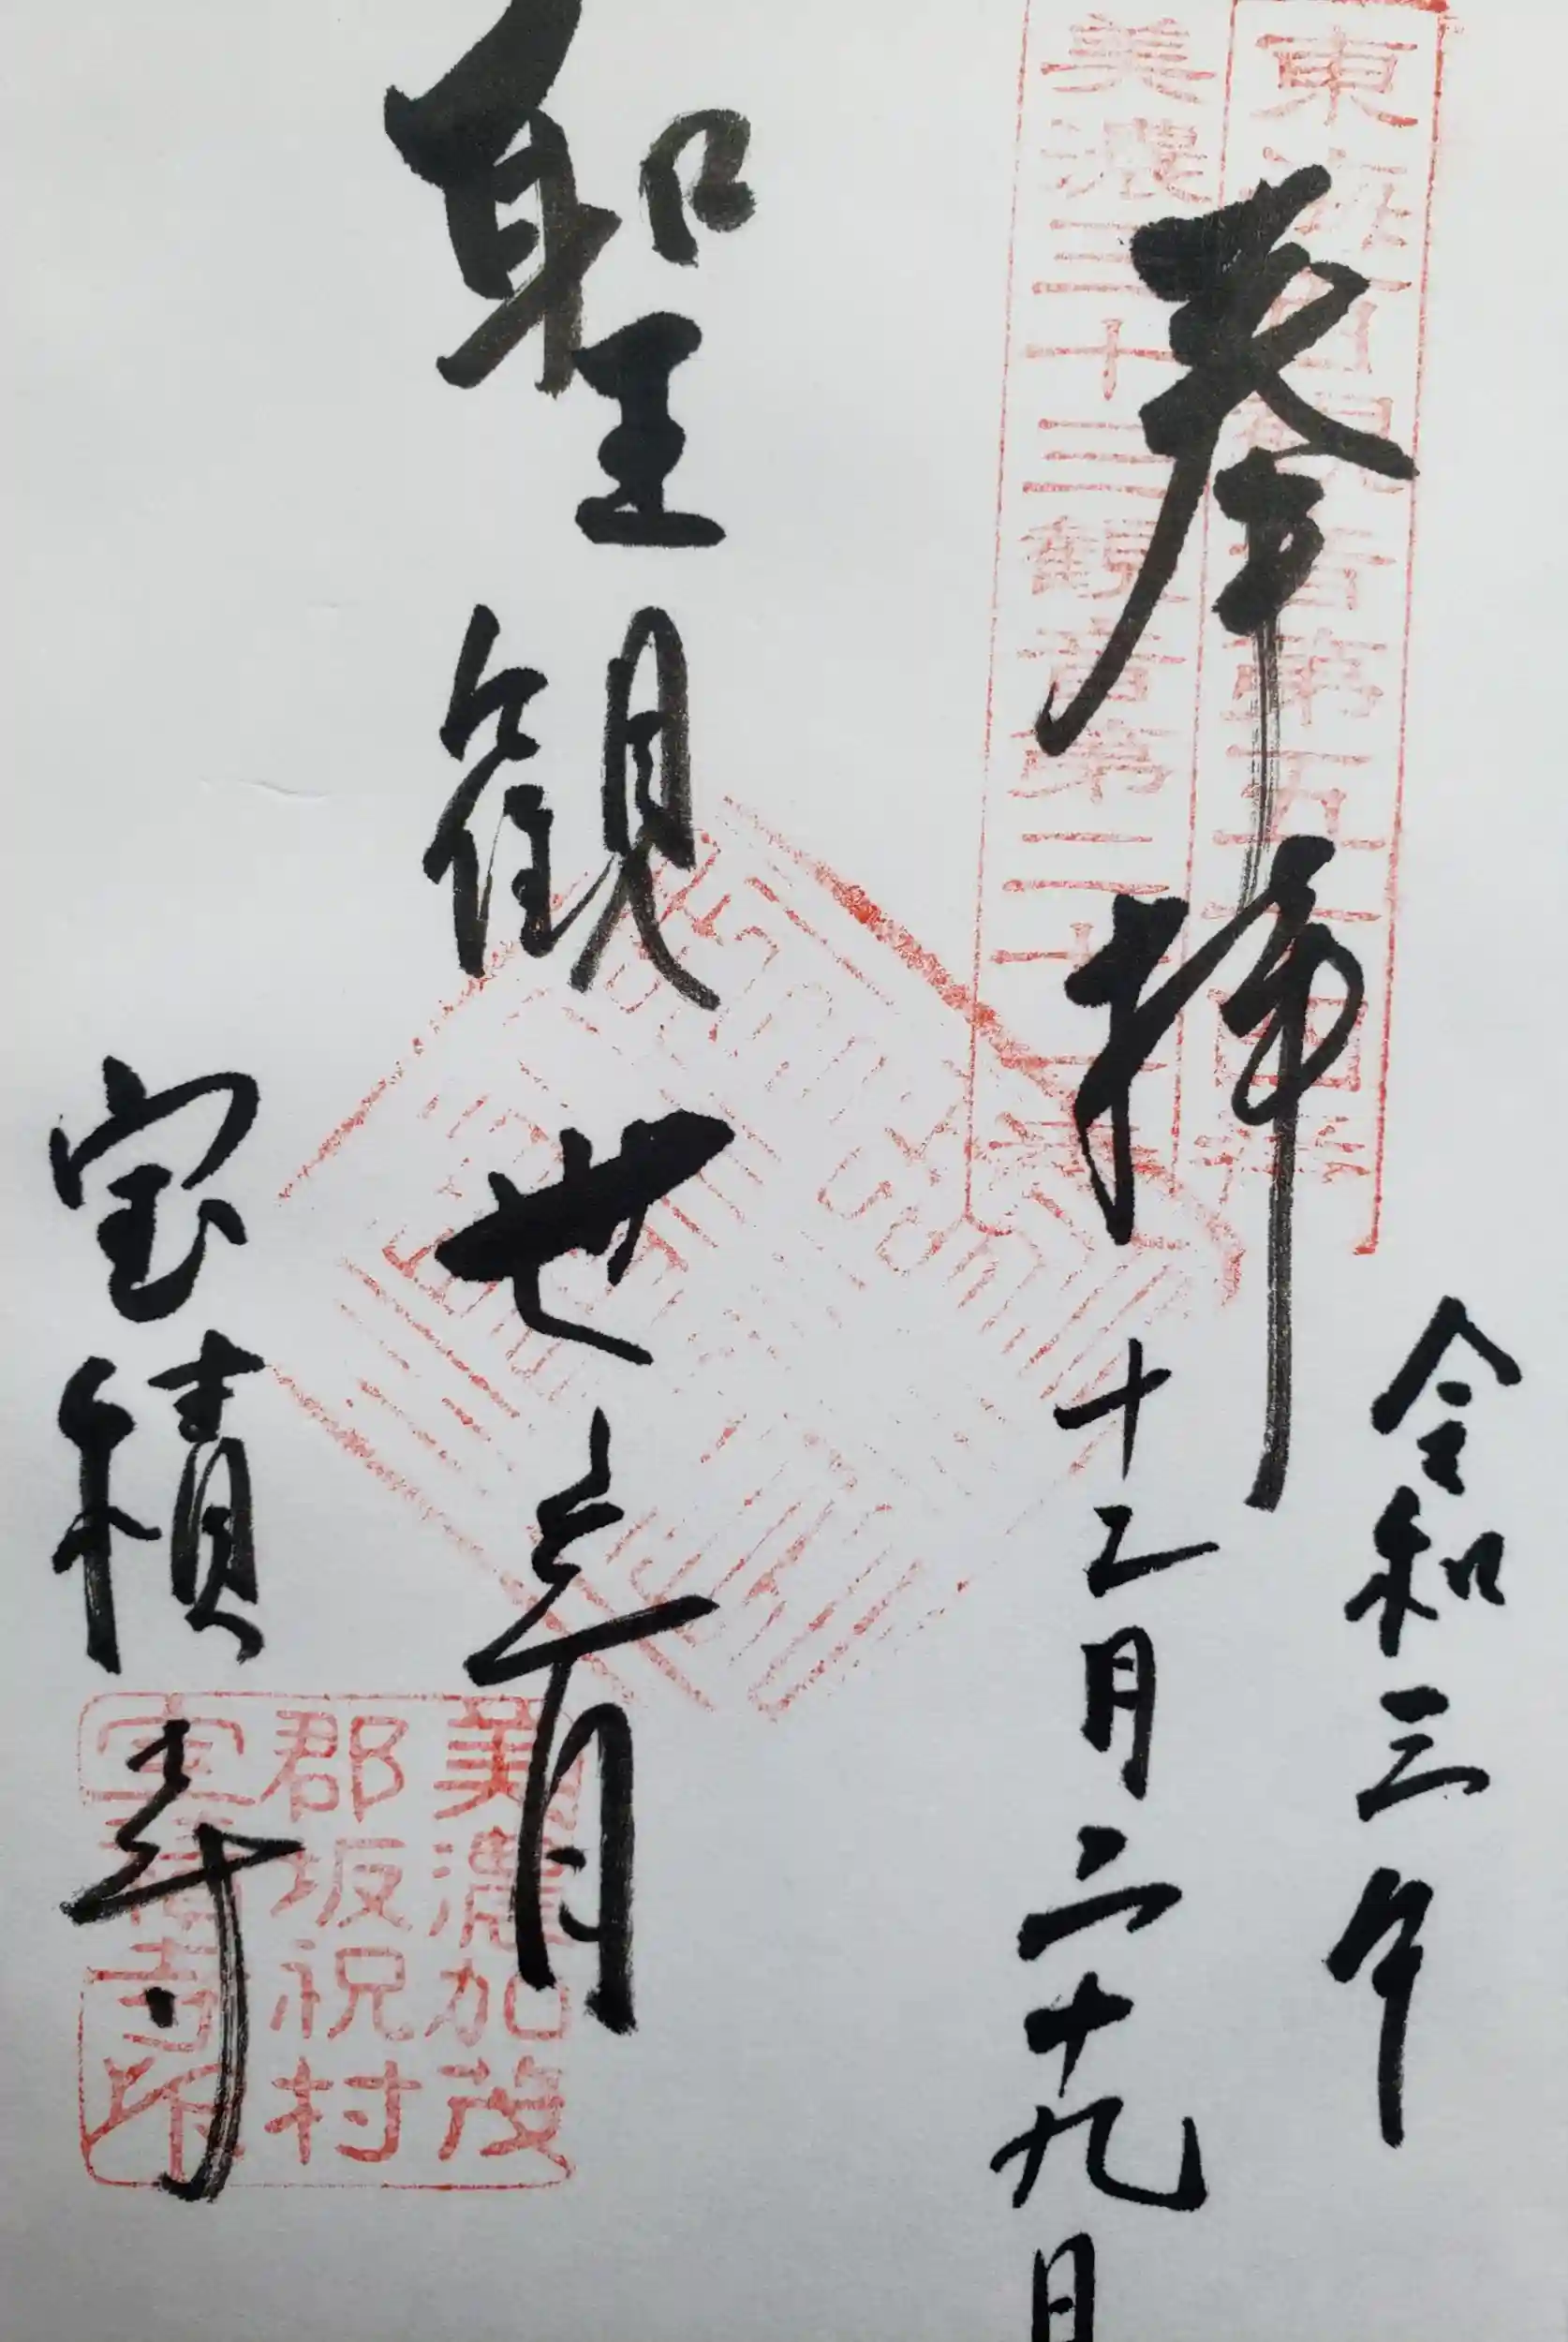 東海百観音第五十四番
美濃三十三観音第二十一番
奉拝
令和三年
十二月二十九日
聖観世音
宝積寺
美濃加茂
郡坂祝村
積寺印